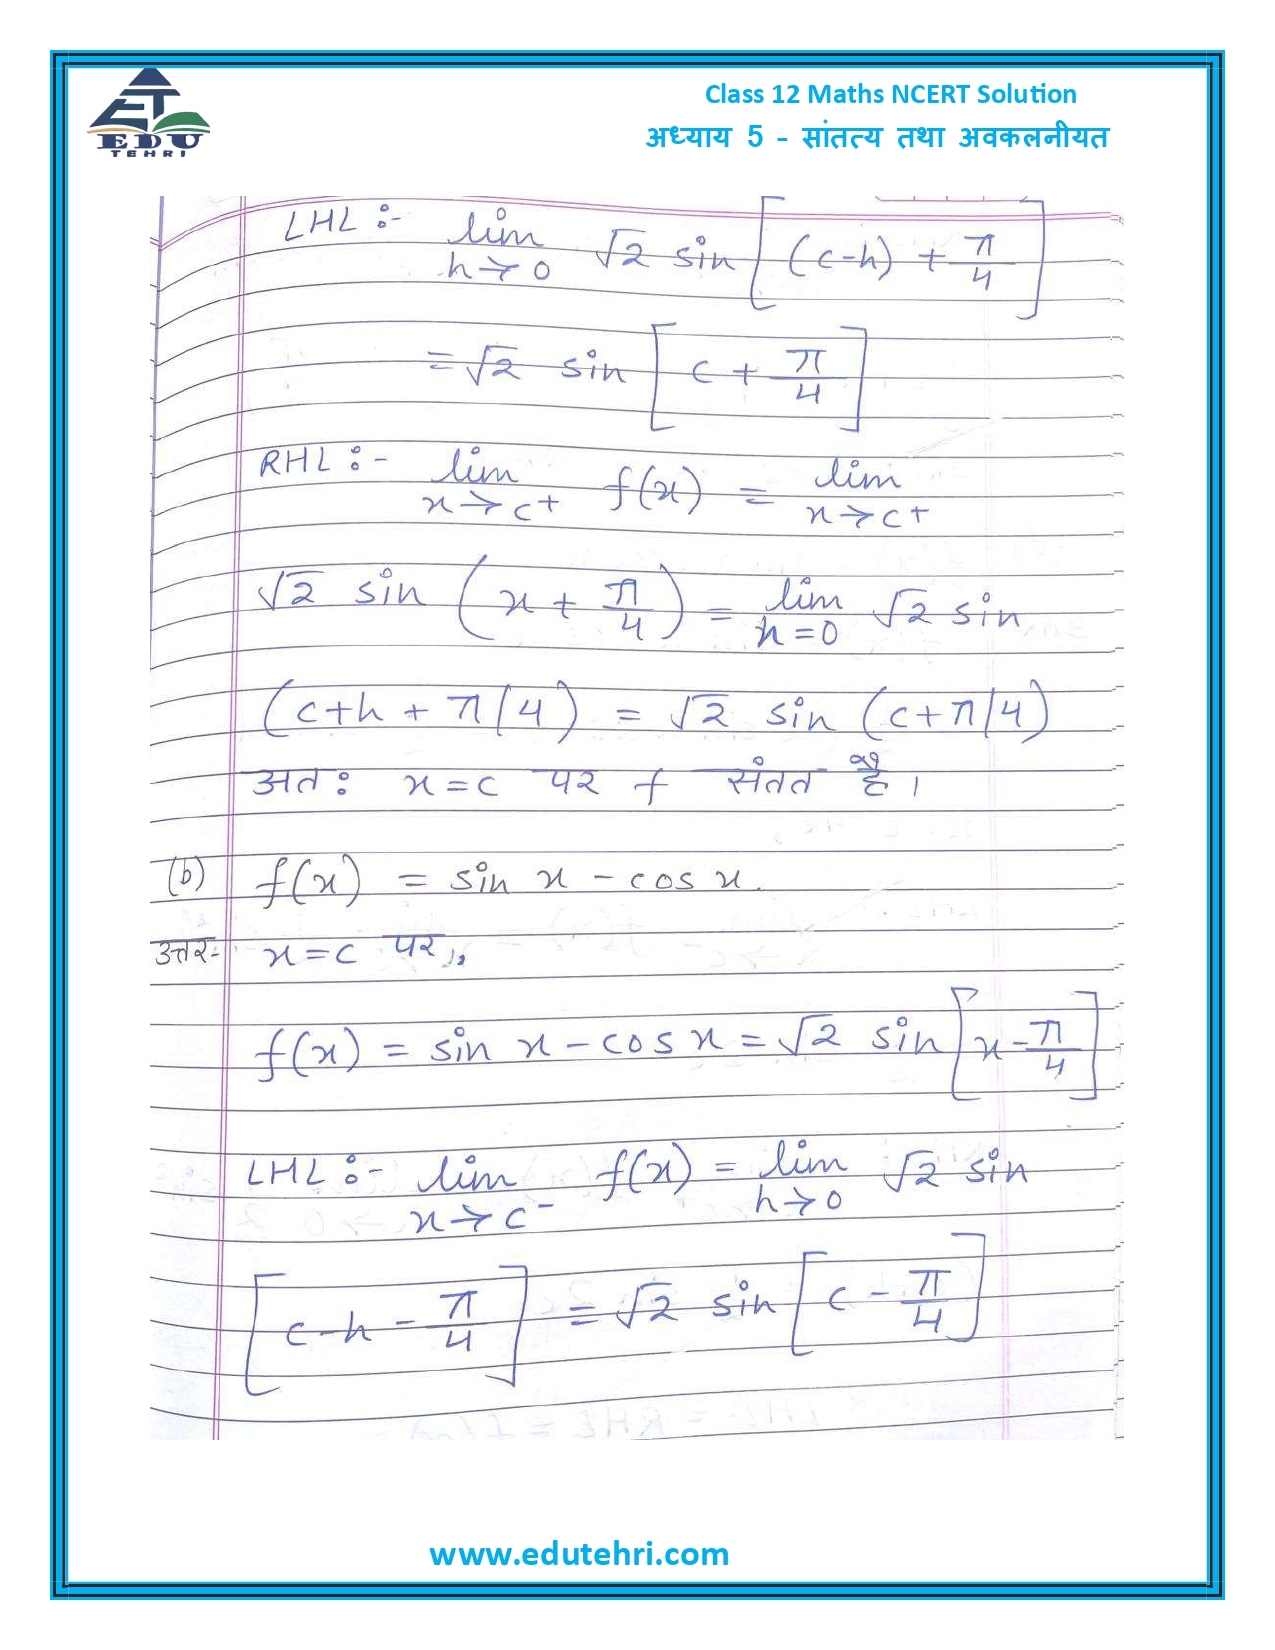 EDU
TEHRI
Class 12 Maths NCERT Solution
अध्याय 5 - सांतत्य तथा अवकलनीयत
LHL :- lim h→0 √2 sin [(c-h) + π/4]
= √2 sin [c + π/4]
RHL :- lim x→c+ f(x) = lim x→c+
√2 sin (x + π/4) = lim h=0 √2 sin
(c+h + π/4) = √2 sin (c+π/4)
अत: x=c पर f संतत है।
(b) f(x) = sin x - cos x.
उत्तर- x=c पर,
f(x) = sin x - cos x = √2 sin [x - π/4]
LHL :- lim x→c⁻ f(x) = lim h→0 √2 sin
[c-h - π/4] = √2 sin [c - π/4]
www.edutehri.com